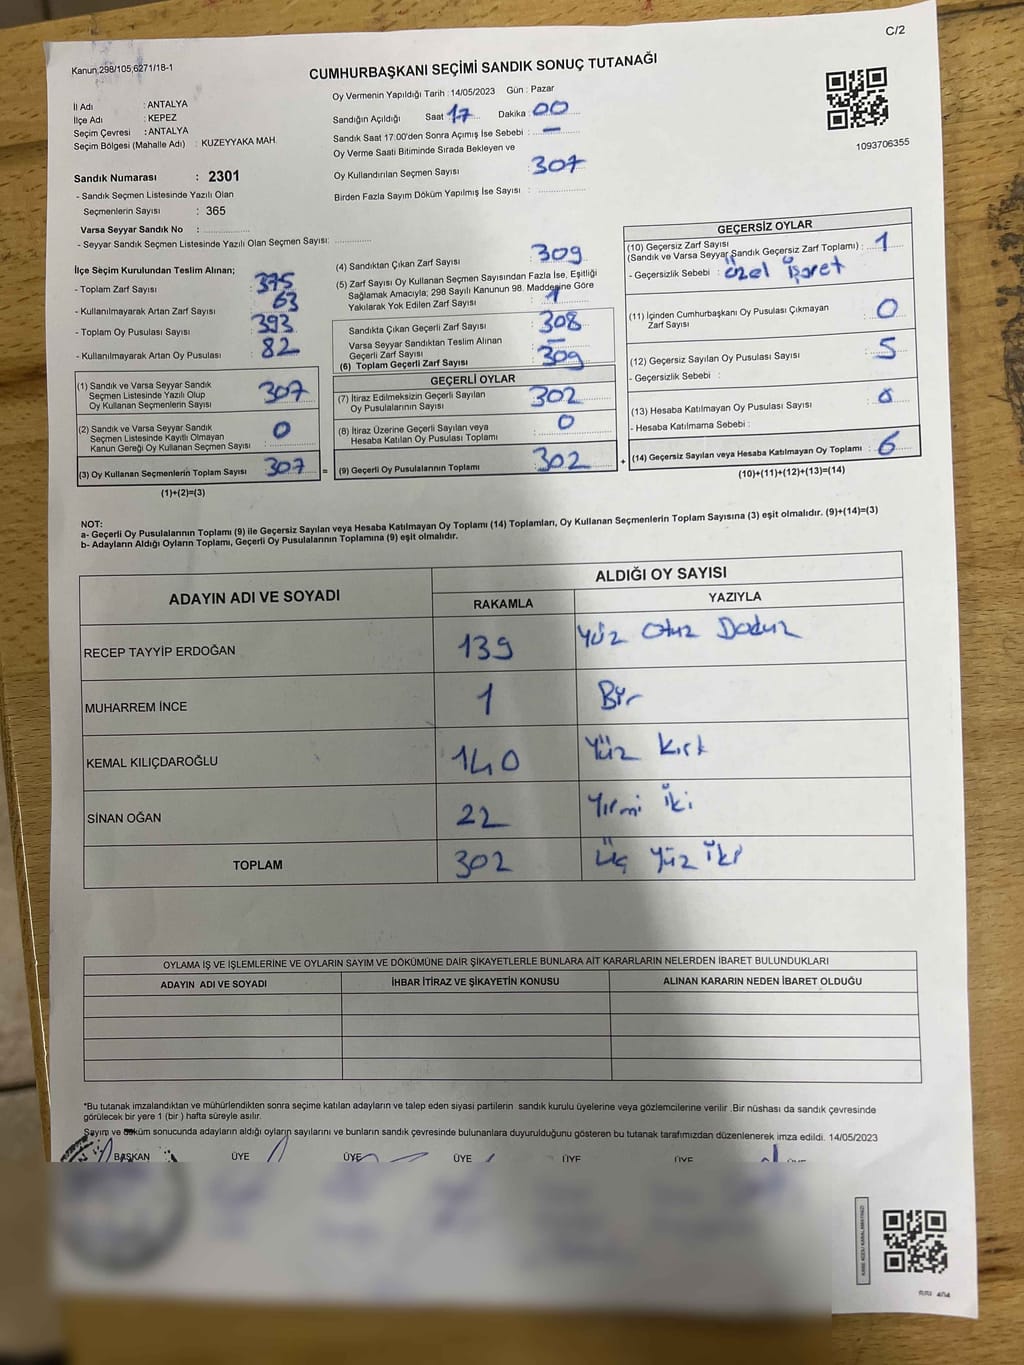 C/2
Kanun,298/105,6271/18-1
CUMHURBAŞKANI SEÇİMİ SANDIK SONUÇ TUTANAĞI
İl Adı : ANTALYA
İlçe Adı : KEPEZ
Seçim Çevresi : ANTALYA
Seçim Bölgesi (Mahalle Adı) : KUZEYYAKA MAH.
Sandık Numarası : 2301
- Sandık Seçmen Listesinde Yazılı Olan
Seçmenlerin Sayısı : 365
Varsa Seyyar Sandık No :
- Seyyar Sandık Seçmen Listesinde Yazılı Olan Seçmen Sayısı:
Oy Vermenin Yapıldığı Tarih : 14/05/2023 Gün : Pazar
Sandığın Açıldığı Saat 17 Dakika 00
Sandık Saat 17:00'den Sonra Açımış İse Sebebi : —
Oy Verme Saati Bitiminde Sırada Bekleyen ve
Oy Kullandırılan Seçmen Sayısı : 307
Birden Fazla Sayım Döküm Yapılmış İse Sayısı :
1093706355
İlçe Seçim Kurulundan Teslim Alınan;
- Toplam Zarf Sayısı : 375
- Kullanılmayarak Artan Zarf Sayısı : 63
- Toplam Oy Pusulası Sayısı : 393
- Kullanılmayarak Artan Oy Pusulası : 82
(1) Sandık ve Varsa Seyyar Sandık
Seçmen Listesinde Yazılı Olup
Oy Kullanan Seçmenlerin Sayısı : 307
(2) Sandık ve Varsa Seyyar Sandık
Seçmen Listesinde Kayıtlı Olmayan
Kanun Gereği Oy Kullanan Seçmen Sayısı : 0
(3) Oy Kullanan Seçmenlerin Toplam Sayısı : 307 =
(1)+(2)=(3)
(4) Sandıktan Çıkan Zarf Sayısı : 309
(5) Zarf Sayısı Oy Kullanan Seçmen Sayısından Fazla İse, Eşitliği
Sağlamak Amacıyla; 298 Sayılı Kanunun 98. Maddesine Göre
Yakılarak Yok Edilen Zarf Sayısı : 1
Sandıkta Çıkan Geçerli Zarf Sayısı : 308
Varsa Seyyar Sandıktan Teslim Alınan
Geçerli Zarf Sayısı : —
(6) Toplam Geçerli Zarf Sayısı : 309
GEÇERLİ OYLAR
(7) İtiraz Edilmeksizin Geçerli Sayılan
Oy Pusulalarının Sayısı : 302
(8) İtiraz Üzerine Geçerli Sayılan veya
Hesaba Katılan Oy Pusulası Toplamı : 0
(9) Geçerli Oy Pusulalarının Toplamı : 302 +
GEÇERSİZ OYLAR
(10) Geçersiz Zarf Sayısı
(Sandık ve Varsa Seyyar Sandık Geçersiz Zarf Toplamı) : 1
- Geçersizlik Sebebi : özel işaret
(11) İçinden Cumhurbaşkanı Oy Pusulası Çıkmayan
Zarf Sayısı : 0
(12) Geçersiz Sayılan Oy Pusulası Sayısı : 5
- Geçersizlik Sebebi :
(13) Hesaba Katılmayan Oy Pusulası Sayısı : 0
- Hesaba Katılmama Sebebi :
(14) Geçersiz Sayılan veya Hesaba Katılmayan Oy Toplamı : 6
(10)+(11)+(12)+(13)=(14)
NOT:
a- Geçerli Oy Pusulalarının Toplamı (9) ile Geçersiz Sayılan veya Hesaba Katılmayan Oy Toplamı (14) Toplamları, Oy Kullanan Seçmenlerin Toplam Sayısına (3) eşit olmalıdır. (9)+(14)=(3)
b- Adayların Aldığı Oyların Toplamı, Geçerli Oy Pusulalarının Toplamına (9) eşit olmalıdır.
ADAYIN ADI VE SOYADI ALDIĞI OY SAYISI
RAKAMLA YAZIYLA
RECEP TAYYİP ERDOĞAN 139 Yüz Otuz Dokuz
MUHARREM İNCE 1 Bir
KEMAL KILIÇDAROĞLU 140 Yüz Kırk
SİNAN OĞAN 22 Yirmi iki
TOPLAM 302 Üç Yüz iki
OYLAMA İŞ VE İŞLEMLERİNE VE OYLARIN SAYIM VE DÖKÜMÜNE DAİR ŞİKAYETLERLE BUNLARA AİT KARARLARIN NELERDEN İBARET BULUNDUKLARI
ADAYIN ADI VE SOYADI İHBAR İTİRAZ VE ŞİKAYETİN KONUSU ALINAN KARARIN NEDEN İBARET OLDUĞU
*Bu tutanak imzalandıktan ve mühürlendikten sonra seçime katılan adayların ve talep eden siyasi partilerin sandık kurulu üyelerine veya gözlemcilerine verilir .Bir nüshası da sandık çevresinde
görülecek bir yere 1 (bir ) hafta süreyle asılır.
Sayım ve döküm sonucunda adayların aldığı oyların sayılarını ve bunların sandık çevresinde bulunanlara duyurulduğunu gösteren bu tutanak tarafımızdan düzenlenerek imza edildi. 14/05/2023
BAŞKAN ÜYE ÜYE ÜYE ÜYE ÜYE ÜYE